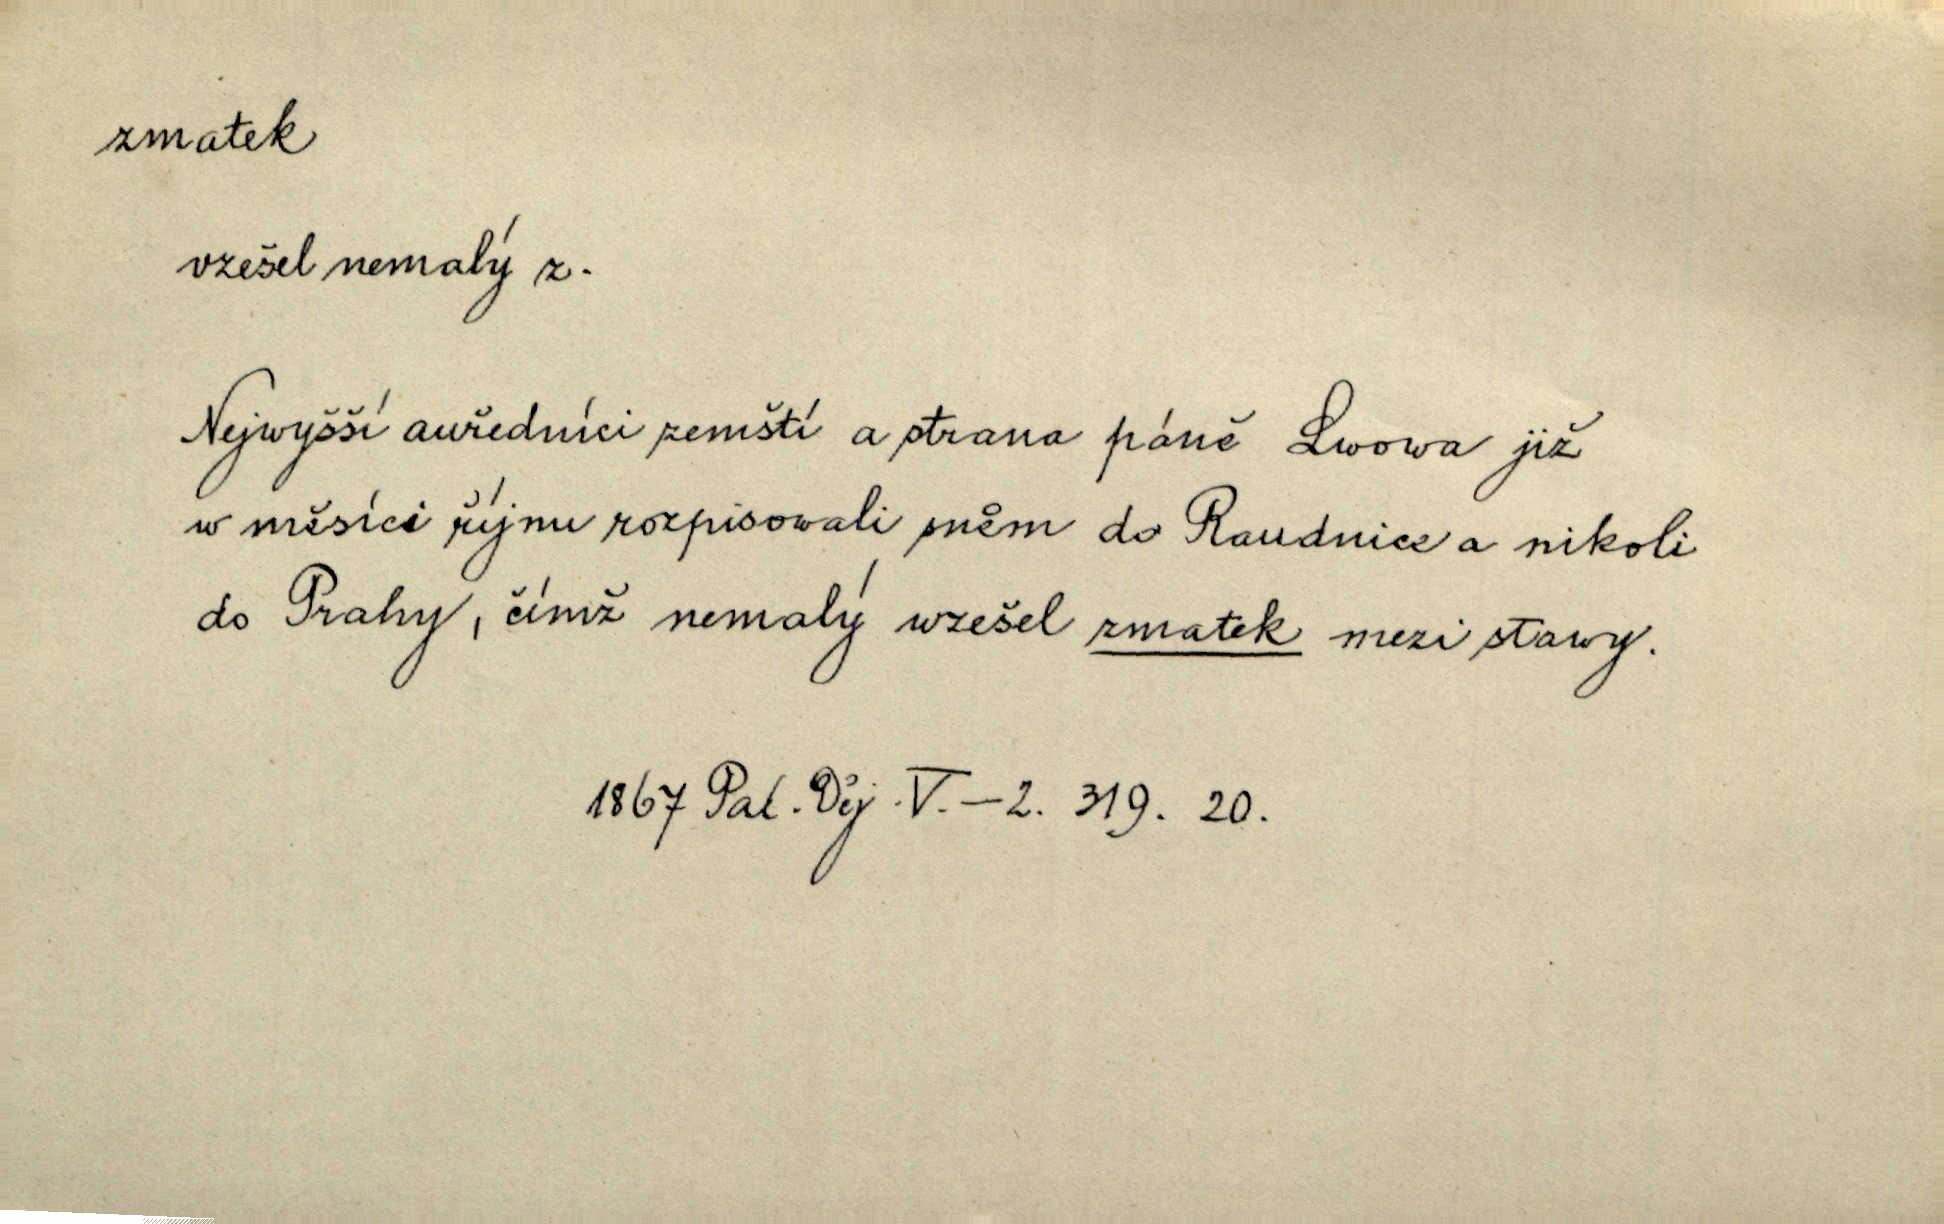 zmatek
vzešel nemalý z.
Nejwyšší auředníci zemští a strana páně Lwowa již
w měsíci říjnu rozpisowali sněm do Raudnice a nikoli
do Prahy, čímž nemalý wzešel zmatek mezi stawy.
1867 Pal. Děj. V.-2. 319. 20.